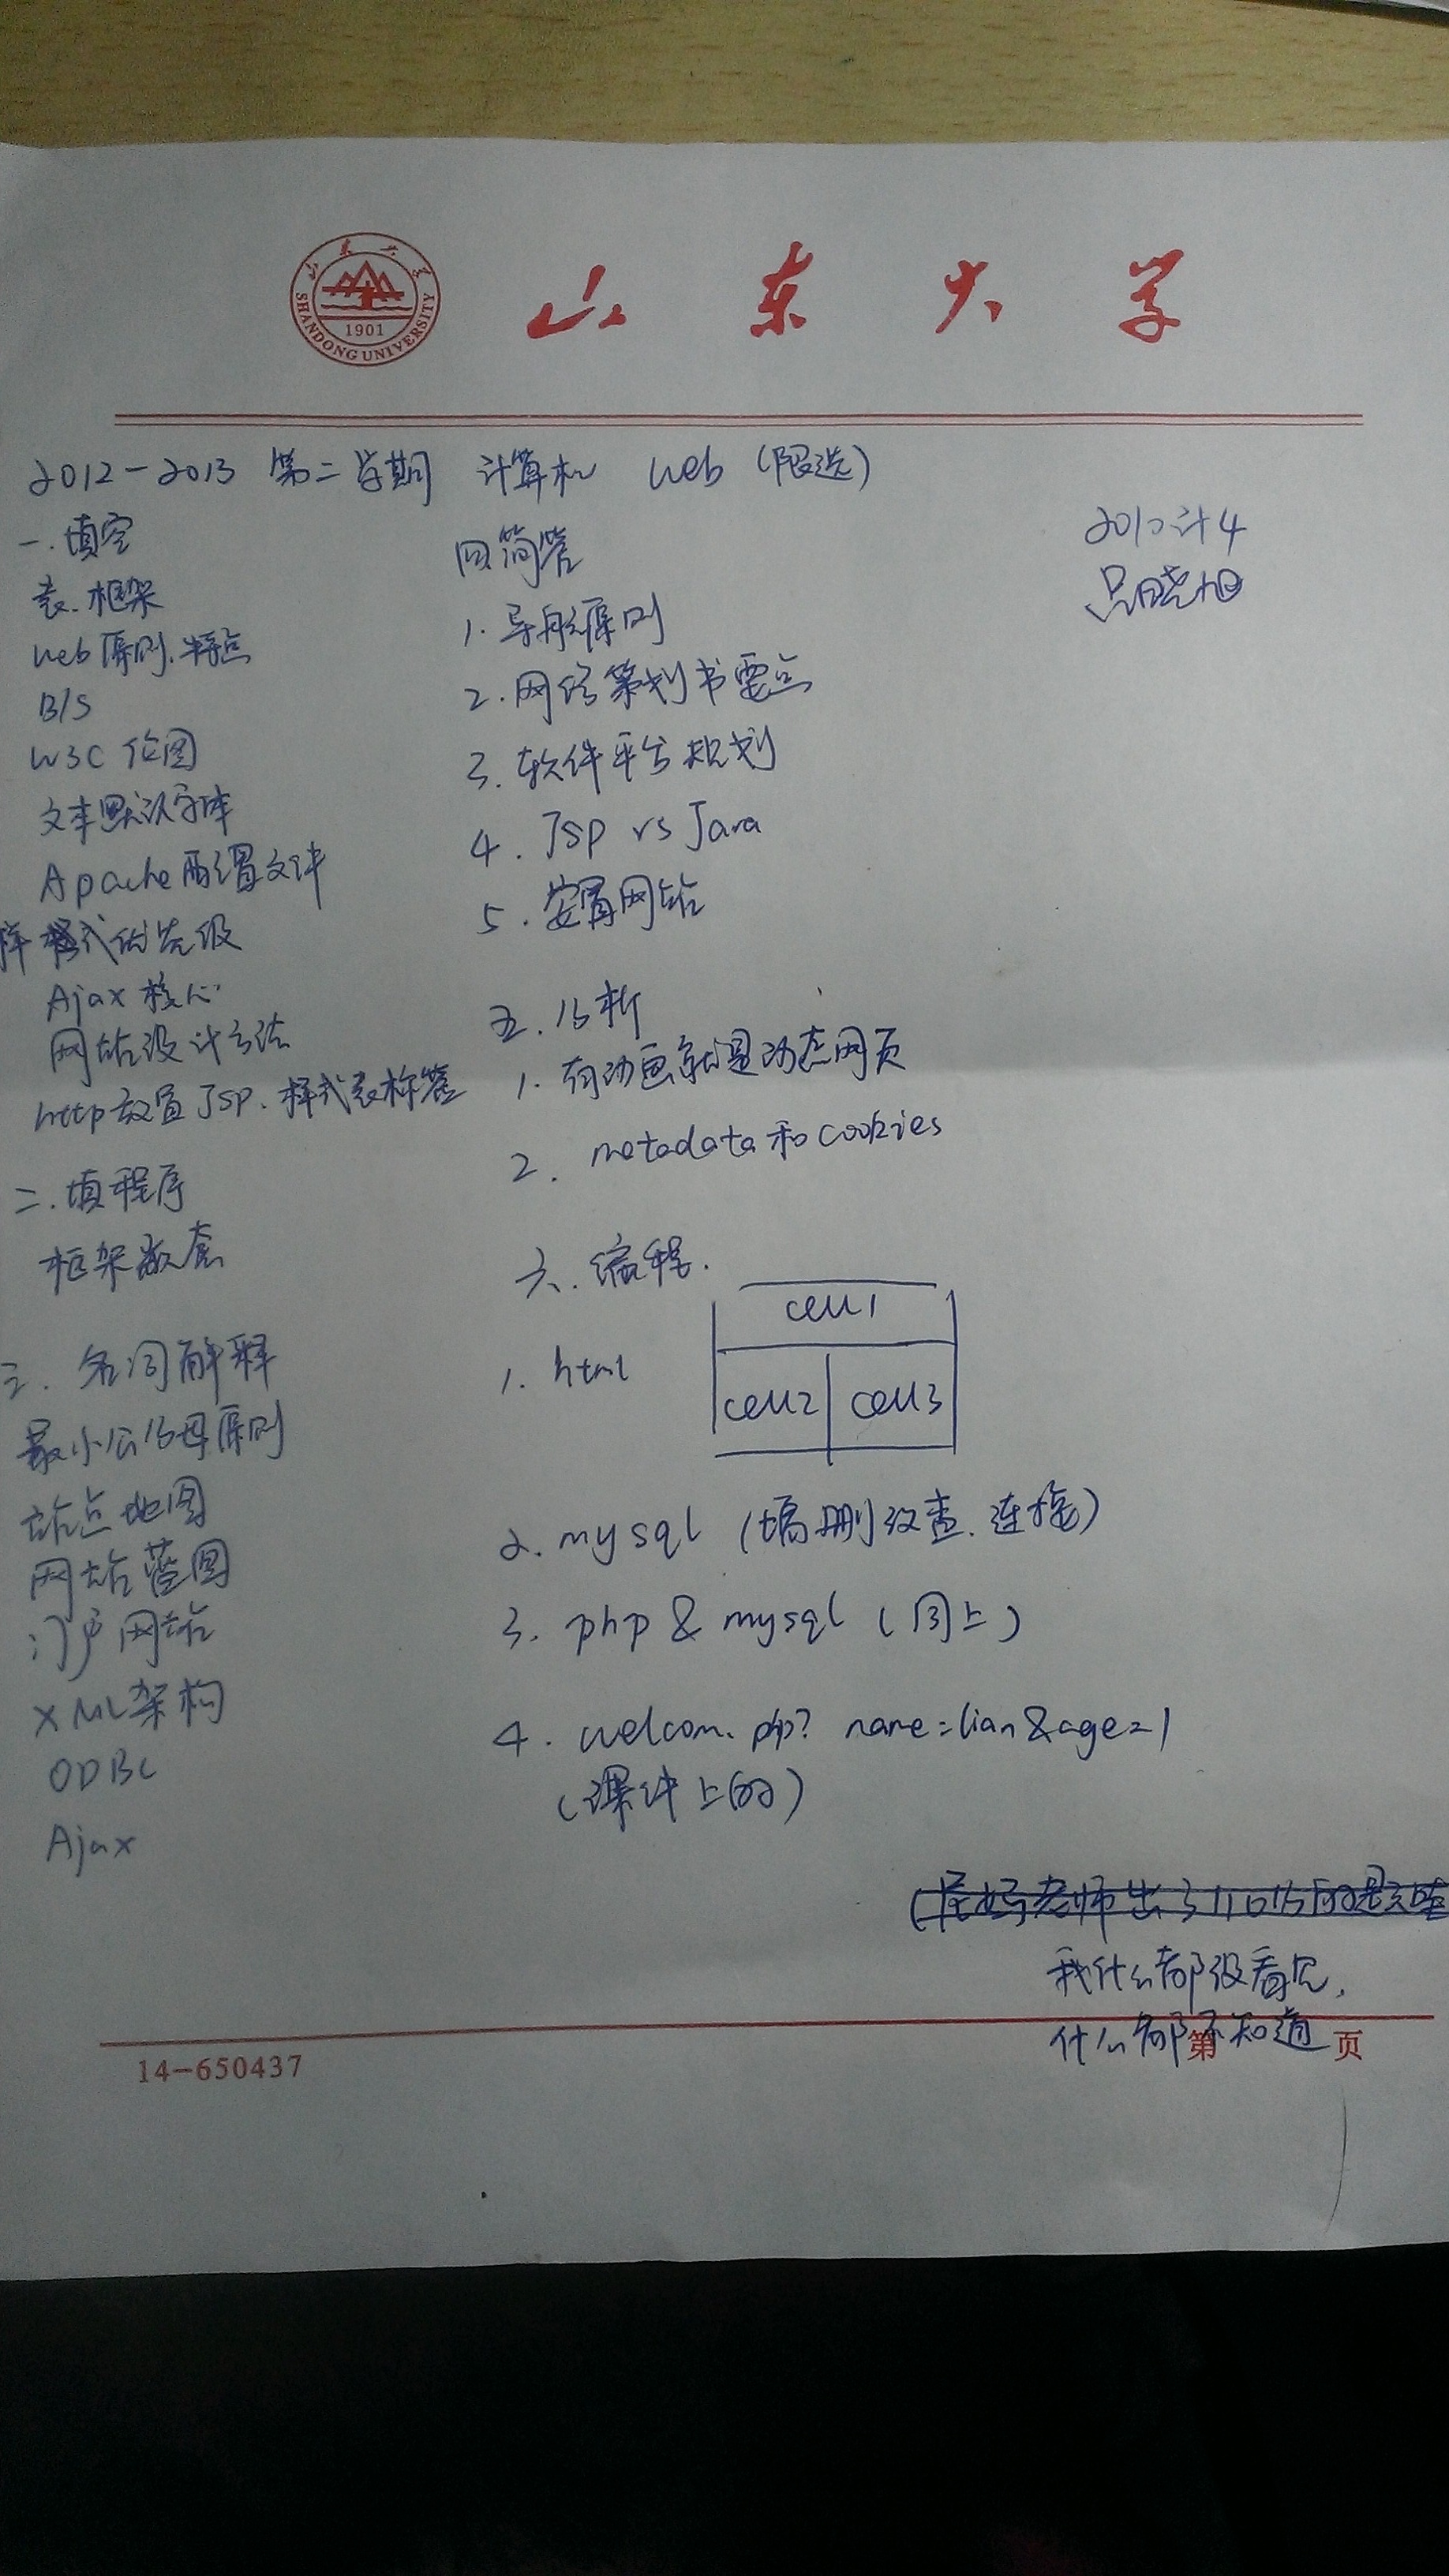 山东大学
SHANDONG UNIVERSITY
1901
山 东 大 学
2012-2013 第二学期 计算机 web (限选)
2010计4
吕晓旭
一.填空
表.框架
web原则.特点
B/S
W3C 位图
文本默认字体
Apache配置文件
样式优先级
Ajax 核心
网站设计方法
http放置JSP.样式表标签
二.填程序
框架嵌套
三.名词解释
最小公分母原则
站点地图
网站蓝图
门户网站
XML架构
ODBC
Ajax
四简答
1.导航原则
2.网络策划书要点
3.软件平台规划
4.Jsp vs Java
5.安置网站
五.分析
1.有动画就是动态网页
2.metadata和cookies
六.编程.
1.html
cell1
cell2 cell3
2.mysql (增删改查.连接)
3.php & mysql (同上)
4.welcom.php? name=lian&age=1
(课件上的)
我什么都没看见,
什么都不知道
14-650437
第 页